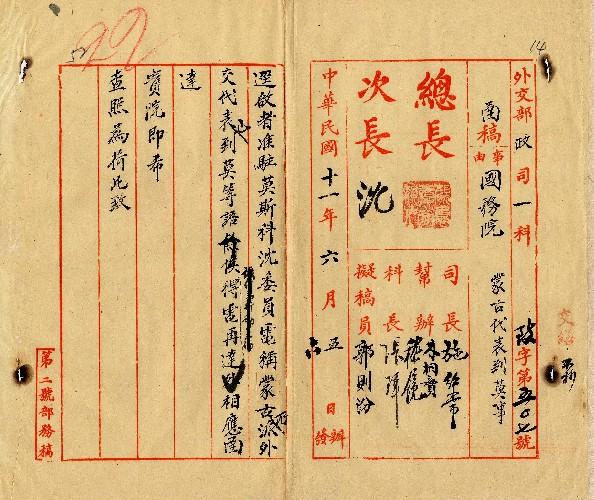 14
外交部 政 司 一 科
政字第五〇七號
函稿
事由
國務院
蒙古代表到莫事
總長
次長 沈
司長 施紹常
幫辦
科長
擬稿員 郭則汾
中華民國十一年六月五日辦
六
發
22
逕啟者准駐莫斯科沈委員電稱蒙古派外
交代表到莫等語
得電再達
相應函
達
貴院即希
查照為荷此致
第二號部務稿